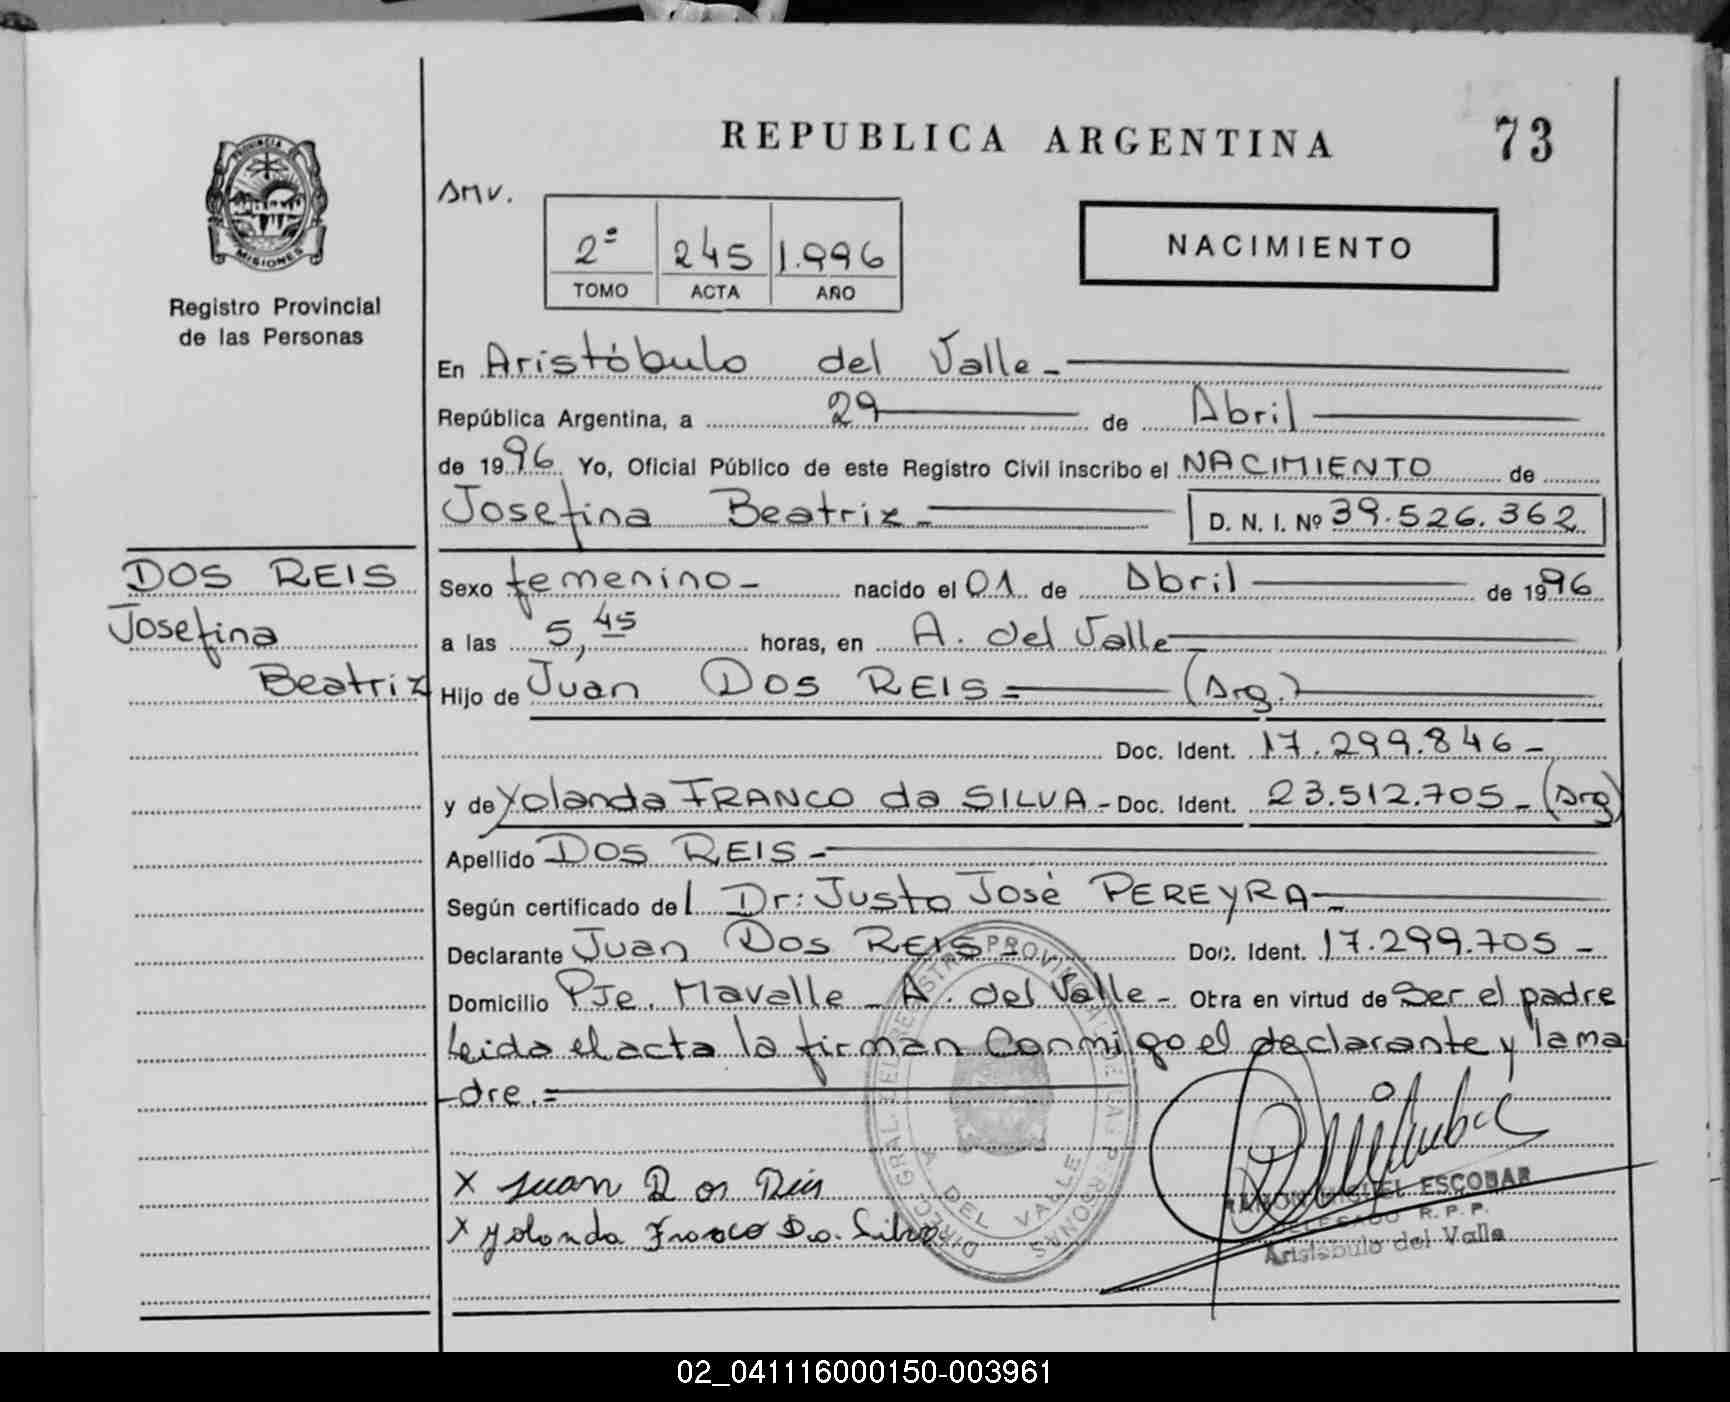 REPUBLICA ARGENTINA
73
PROVINCIA DE
MISIONES
Registro Provincial
de las Personas
AMV.
2º 245 1.996
TOMO ACTA AÑO
NACIMIENTO
En Aristóbulo del Valle -
República Argentina, a 29 de Abril
de 1996 Yo, Oficial Público de este Registro Civil inscribo el NACIMIENTO de
Josefina Beatriz - D. N. I. Nº 39.526.362
DOS REIS
Josefina
Beatriz
Sexo femenino - nacido el 01 de Abril de 1996
a las 5,45 horas, en A. del Valle
Hijo de Juan DOS REIS = (Arg.)
Doc. Ident. 17.299.846 -
y de Yolanda FRANCO da SILVA - Doc. Ident. 23.512.705 - (Arg)
Apellido DOS REIS -
Según certificado del Dr: Justo José PEREYRA -
Declarante Juan Dos REIS - Doc. Ident. 17.299.705 -
Domicilio Pje. Mavalle - A. del Valle - Obra en virtud de Ser el padre
Leida el acta la firman Conmigo el declarante y la ma
dre. =
X Juan D os Reis
X Yolanda Franco Da. Silva
DIRECC. GRAL. DEL REGISTRO PROVINCIAL DE LAS PERSONAS
A. DEL VALLE
RAMON MIGUEL ESCOBAR
DELEGADO R. P. P.
Aristobulo del Valle
02_041116000150-003961